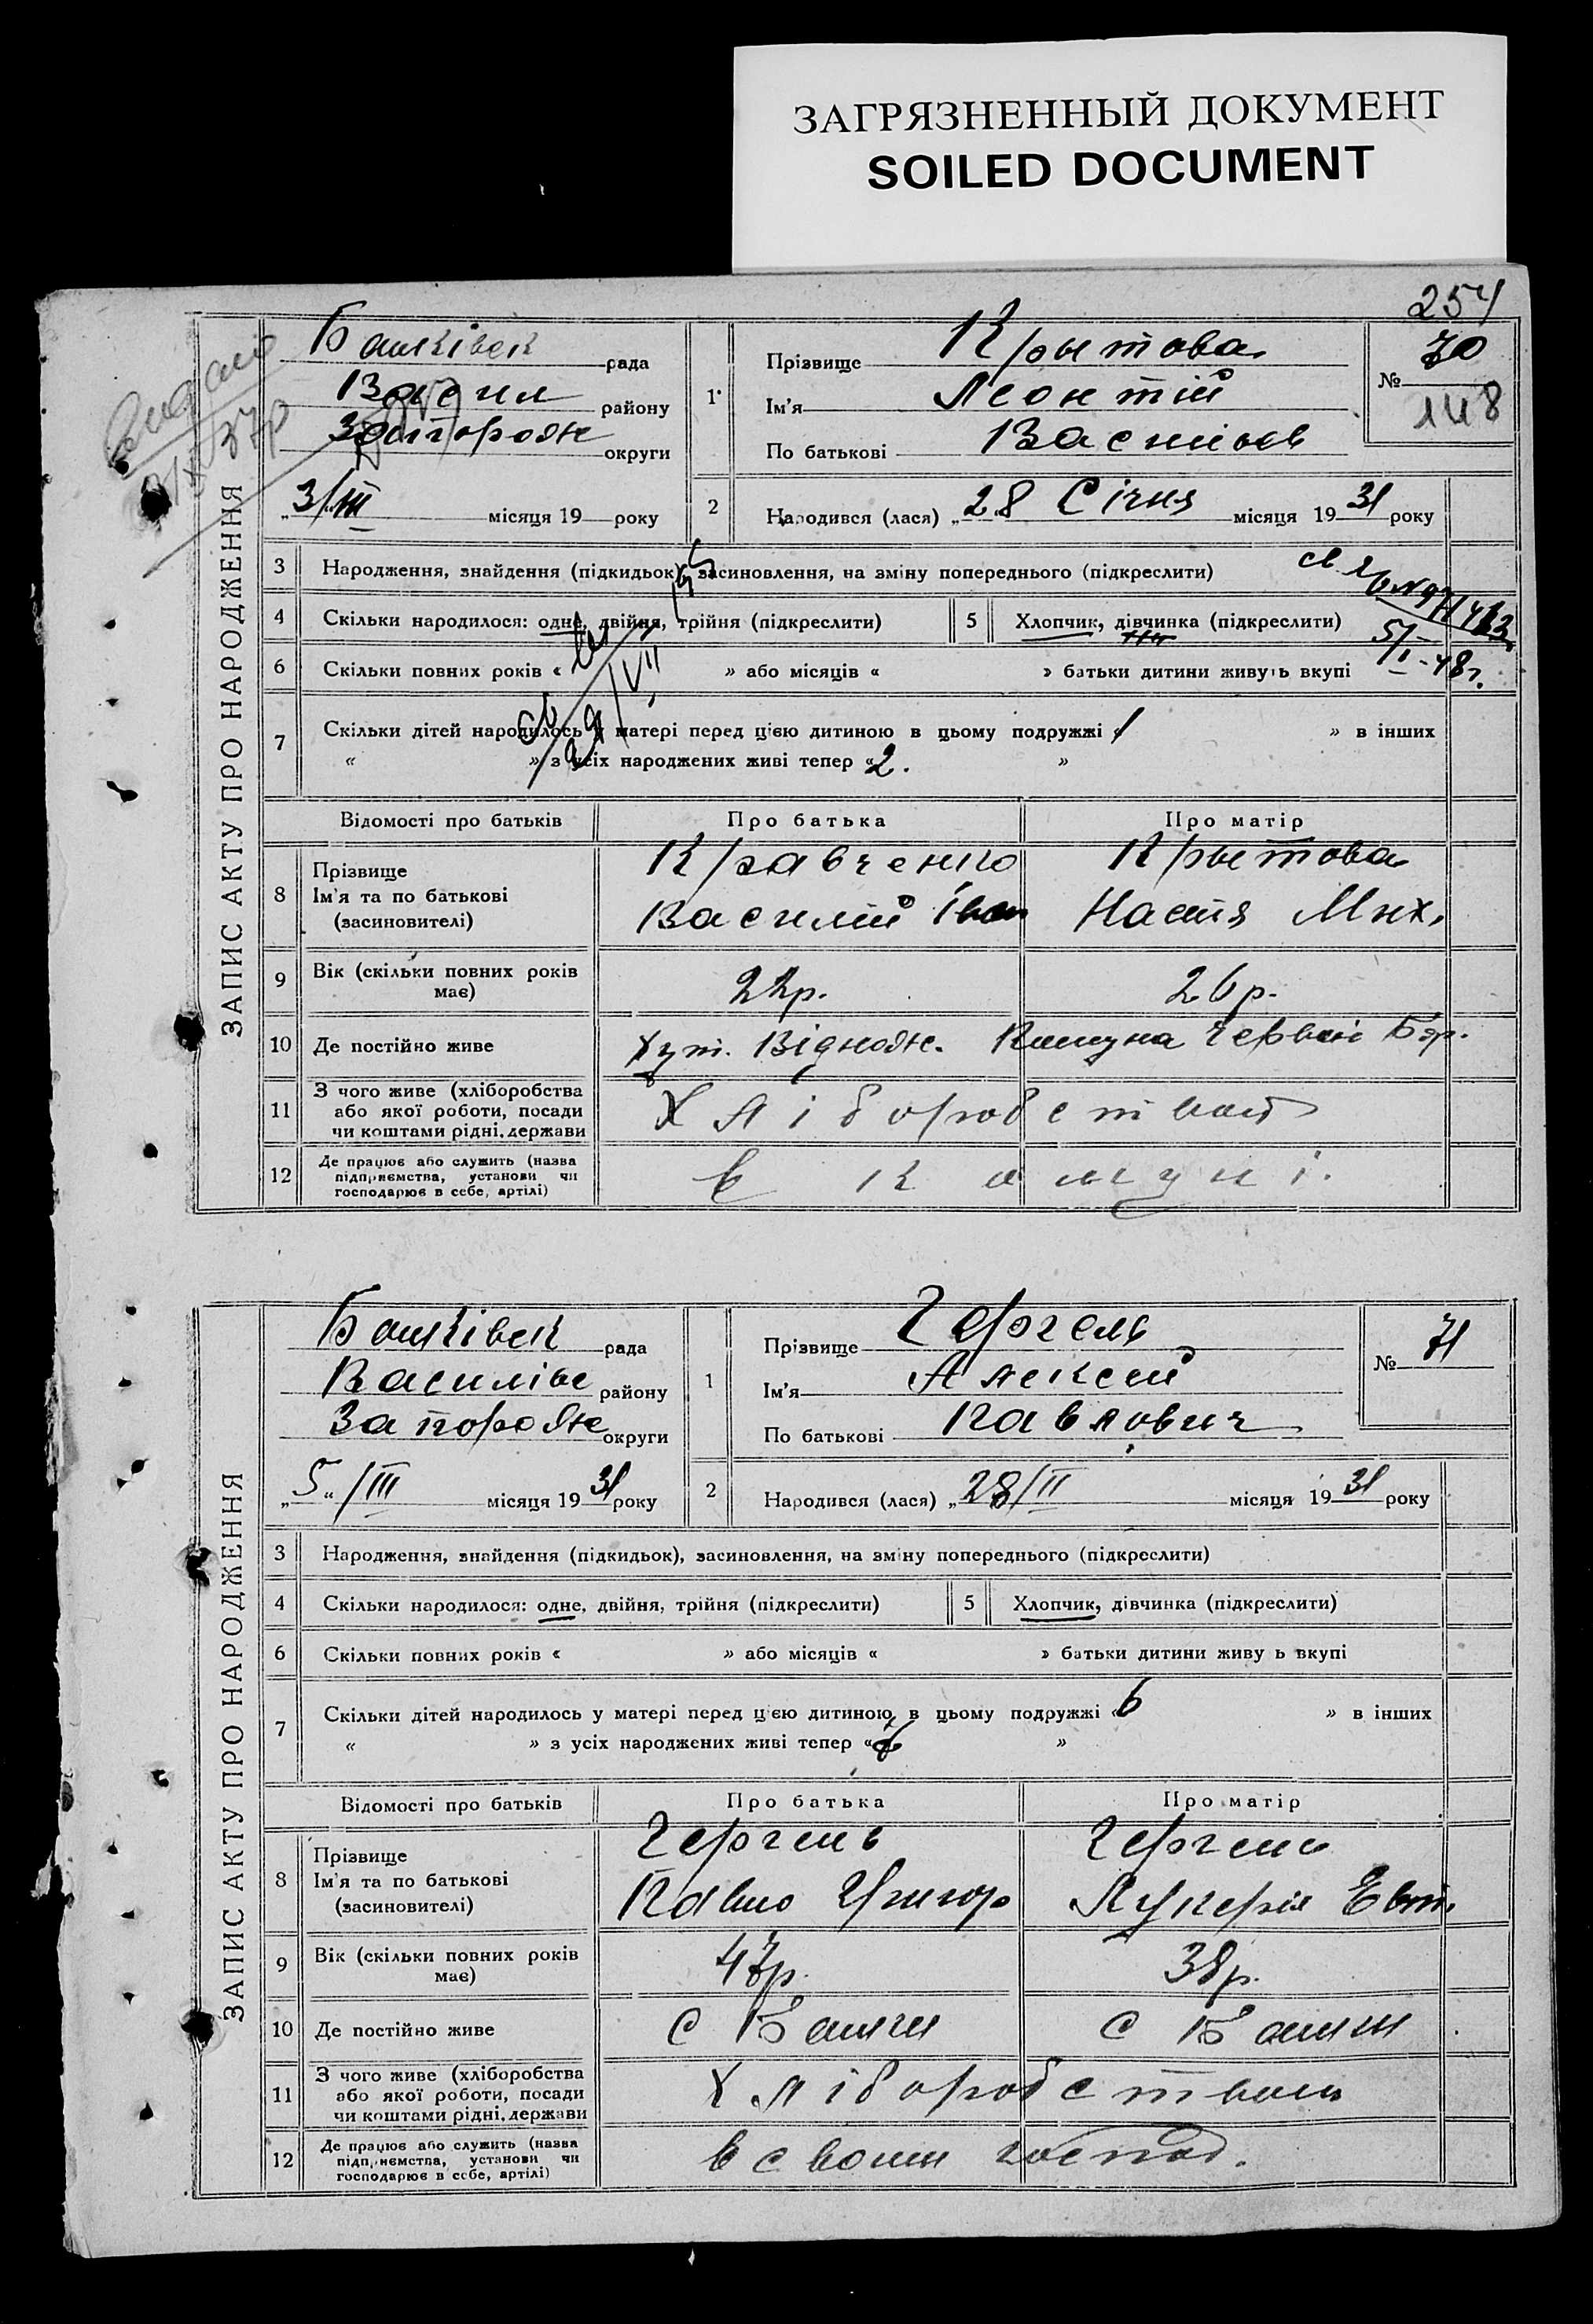 ЗАГРЯЗНЕННЫЙ ДОКУМЕНТ
SOILED DOCUMENT
254
ЗАПИС АКТУ ПРО НАРОДЖЕННЯ
Башківськ рада
Васил району
Запорожс округи
3/III місяця 19 року
1 Прізвище Крытова
Ім'я Леонтій
По батькові Васильєв
№ 70
148
2 Народився (лася) „28 Січня місяця 1931 року
3 Народження, знайдення (підкидьок), засиновлення, на зміну попереднього (підкреслити)
4 Скільки народилося: одне, двійня, трійня (підкреслити) 5 Хлопчик, дівчинка (підкреслити)
5/I-48г.
6 Скільки повних років « » або місяців « » батьки дитини живуть вкупі
7 Скільки дітей народилось у матері перед цією дитиною в цьому подружжі «1 » в інших
« » з усіх народжених живі тепер «2. »
Відомості про батьків Про батька Про матір
8 Прізвище Кравченко Крытова
Ім'я та по батькові Василий Іван Настя Мих.
(засиновителі)
9 Вік (скільки повних років має) 22р. 26р.
10 Де постійно живе Хут. Віднож. Комуна Червон Бер.
11 З чого живе (хліборобства або якої роботи, посади чи коштами рідні, держави Хліборобством
12 Де працює або служить (назва підприємства, установи чи господарює в себе, артілі) в комуні.
ЗАПИС АКТУ ПРО НАРОДЖЕННЯ
Башківськ рада
Василівс району
Запорожс округи
„5“/III місяця 1931 року
1 Прізвище Чергель
Ім'я Алексей
По батькові Павлович
№ 71
2 Народився (лася) „28/II місяця 1931 року
3 Народження, знайдення (підкидьок), засиновлення, на зміну попереднього (підкреслити)
4 Скільки народилося: одне, двійня, трійня (підкреслити) 5 Хлопчик, дівчинка (підкреслити)
6 Скільки повних років « » або місяців « » батьки дитини живу ь вкупі
7 Скільки дітей народилось у матері перед цією дитиною в цьому подружжі «6 » в інших
« » з усіх народжених живі тепер « »
Відомості про батьків Про батька Про матір
8 Прізвище Чергель Чергель
Ім'я та по батькові Павло Григор Лукерія Евт.
(засиновителі)
9 Вік (скільки повних років має) 47р. 38р.
10 Де постійно живе С Башки С Башки
11 З чого живе (хліборобства або якої роботи, посади чи коштами рідні, держави Хліборобством
12 Де працює або служить (назва підприємства, установи чи господарює в себе, артілі) в своим господ.